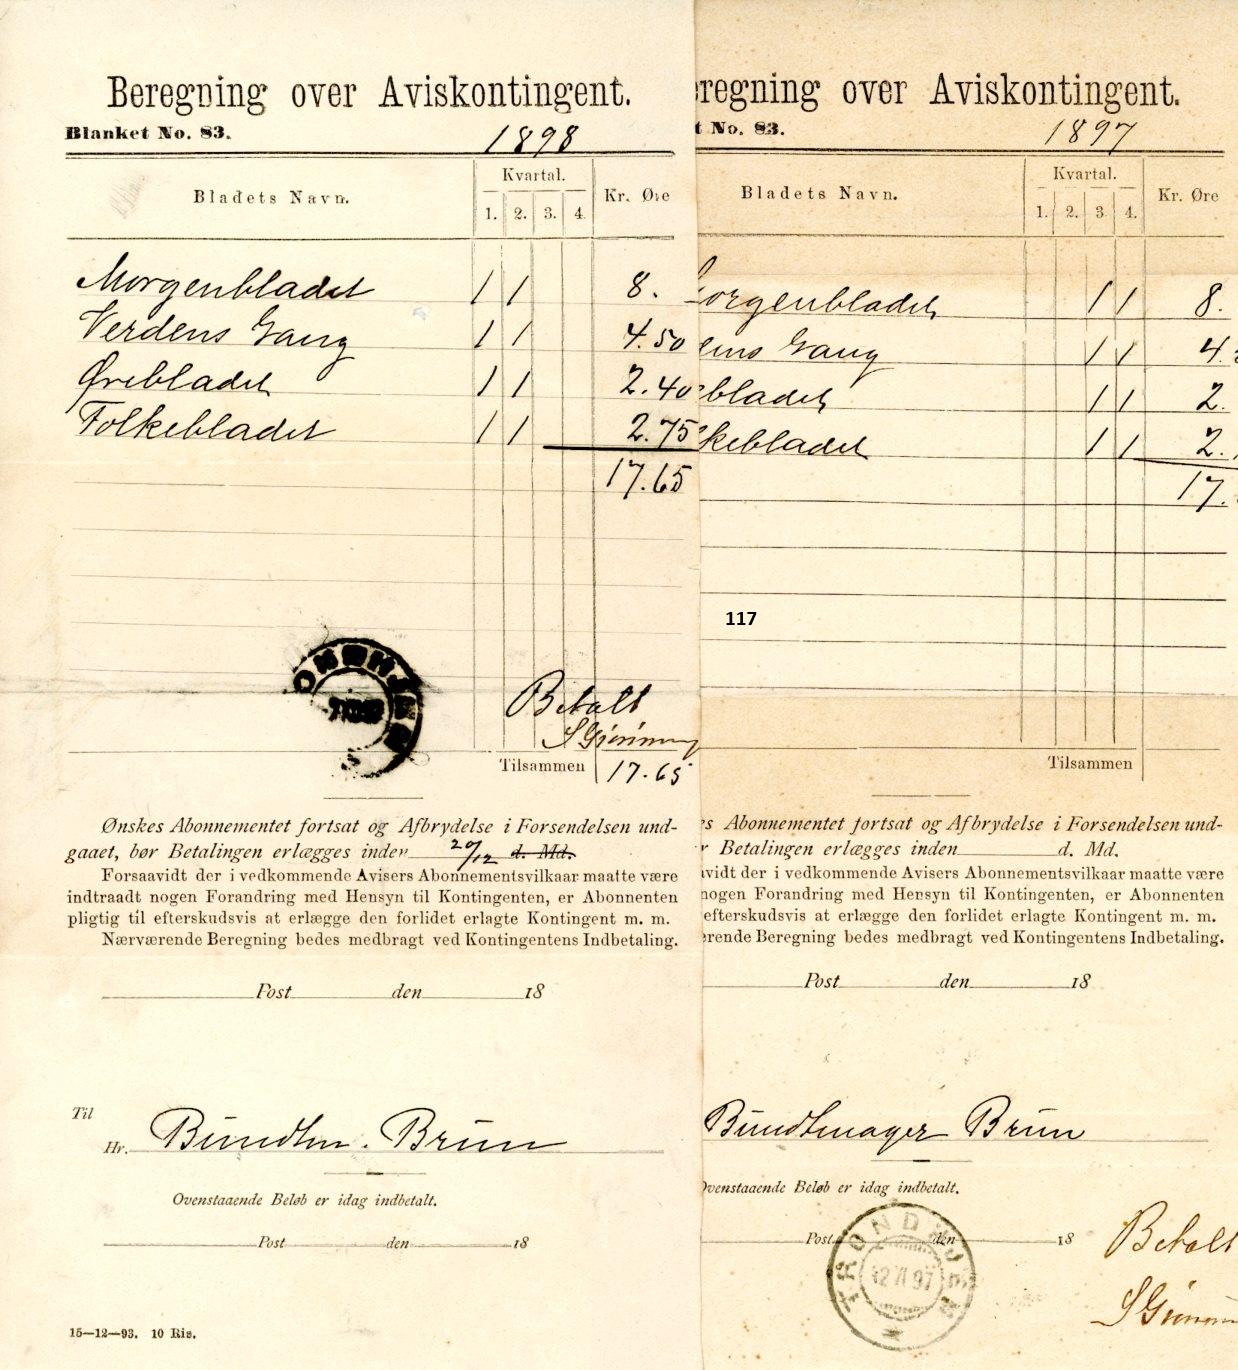 Beregning over Aviskontingent.
Blanket No. 83.
1898
Bladets Navn.
Kvartal.
1. 2. 3. 4.
Kr. Øre
Morgenbladet 1 1 8.
Verdens Gang 1 1 4.50
Ørebladet 1 1 2.40
Folkebladet 1 1 2.75
17.65
Betalt
Tilsammen 17.65
Ønskes Abonnementet fortsat og Afbrydelse i Forsendelsen und-
gaaet, bør Betalingen erlægges inden 20/12 d. Md.
Forsaavidt der i vedkommende Avisers Abonnementsvilkaar maatte være
indtraadt nogen Forandring med Hensyn til Kontingenten, er Abonnenten
pligtig til efterskudsvis at erlægge den forlidet erlagte Kontingent m. m.
Nærværende Beregning bedes medbragt ved Kontingentens Indbetaling.
Post den 18
Til
Hr. Bundtm. Brun
Ovenstaaende Beløb er idag indbetalt.
Post den 18
15—12—93. 10 Ris.
eregning over Aviskontingent.
t No. 83.
1897
Bladets Navn.
Kvartal.
1. 2. 3. 4.
Kr. Øre
orgenbladet 1 1 8.
ens Gang 1 1 4.
bladet 1 1 2.
kebladet 1 1 2.
17.
117
Tilsammen
s Abonnementet fortsat og Afbrydelse i Forsendelsen und-
r Betalingen erlægges inden d. Md.
vidt der i vedkommende Avisers Abonnementsvilkaar maatte være
nogen Forandring med Hensyn til Kontingenten, er Abonnenten
efterskudsvis at erlægge den forlidet erlagte Kontingent m. m.
rende Beregning bedes medbragt ved Kontingentens Indbetaling.
Post den 18
Bundtmager Brun
Ovenstaaende Beløb er idag indbetalt.
Post den 18
TRONDHJEM
12 VI 97
Betalt